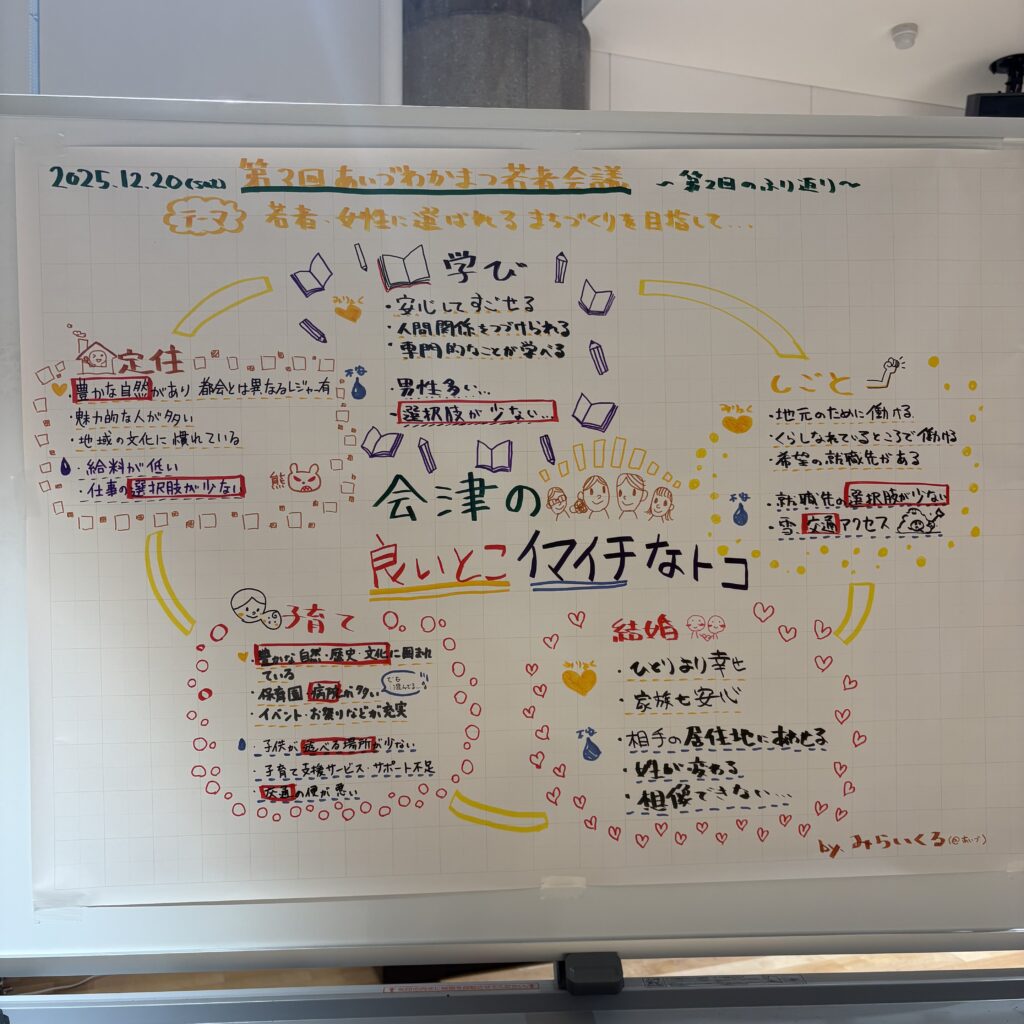 2025.12.20(sat) 第3回 あいづわかまつ若者会議 〜第2回のふり返り〜
テーマ 若者・女性に選ばれるまちづくりを目指して...
学び
みりょく
・安心してすごせる
・人間関係をつづけられる
・専門的なことが学べる
・男性多い...
・選択肢が少ない...
定住
・豊かな自然があり 都会とは異なるレジャー有
・魅力的な人が多い
・地域の文化に慣れている
・給料が低い
・仕事の選択肢が少ない
熊
しごと
みりょく
・地元のために働ける
・くらしなれているところで働ける
・希望の就職先がある
不安
・就職先の選択肢が少ない
・雪、交通アクセス
会津の
良いとこ イマイチなトコ
子育て
・豊かな自然・歴史・文化に囲まれ
ている
・保育園・病院が多い
でも混んでる...
・イベント・お祭りなどが充実
・子供が遊べる場所が少ない
・子育て支援サービス・サポート不足
・交通の便が悪い
結婚
みりょく
・ひとりより幸せ
・家族も安心
不安
・相手の居住地にあわせる
・姓が変わる
・想像できない...
by みらいくる(@あいづ)